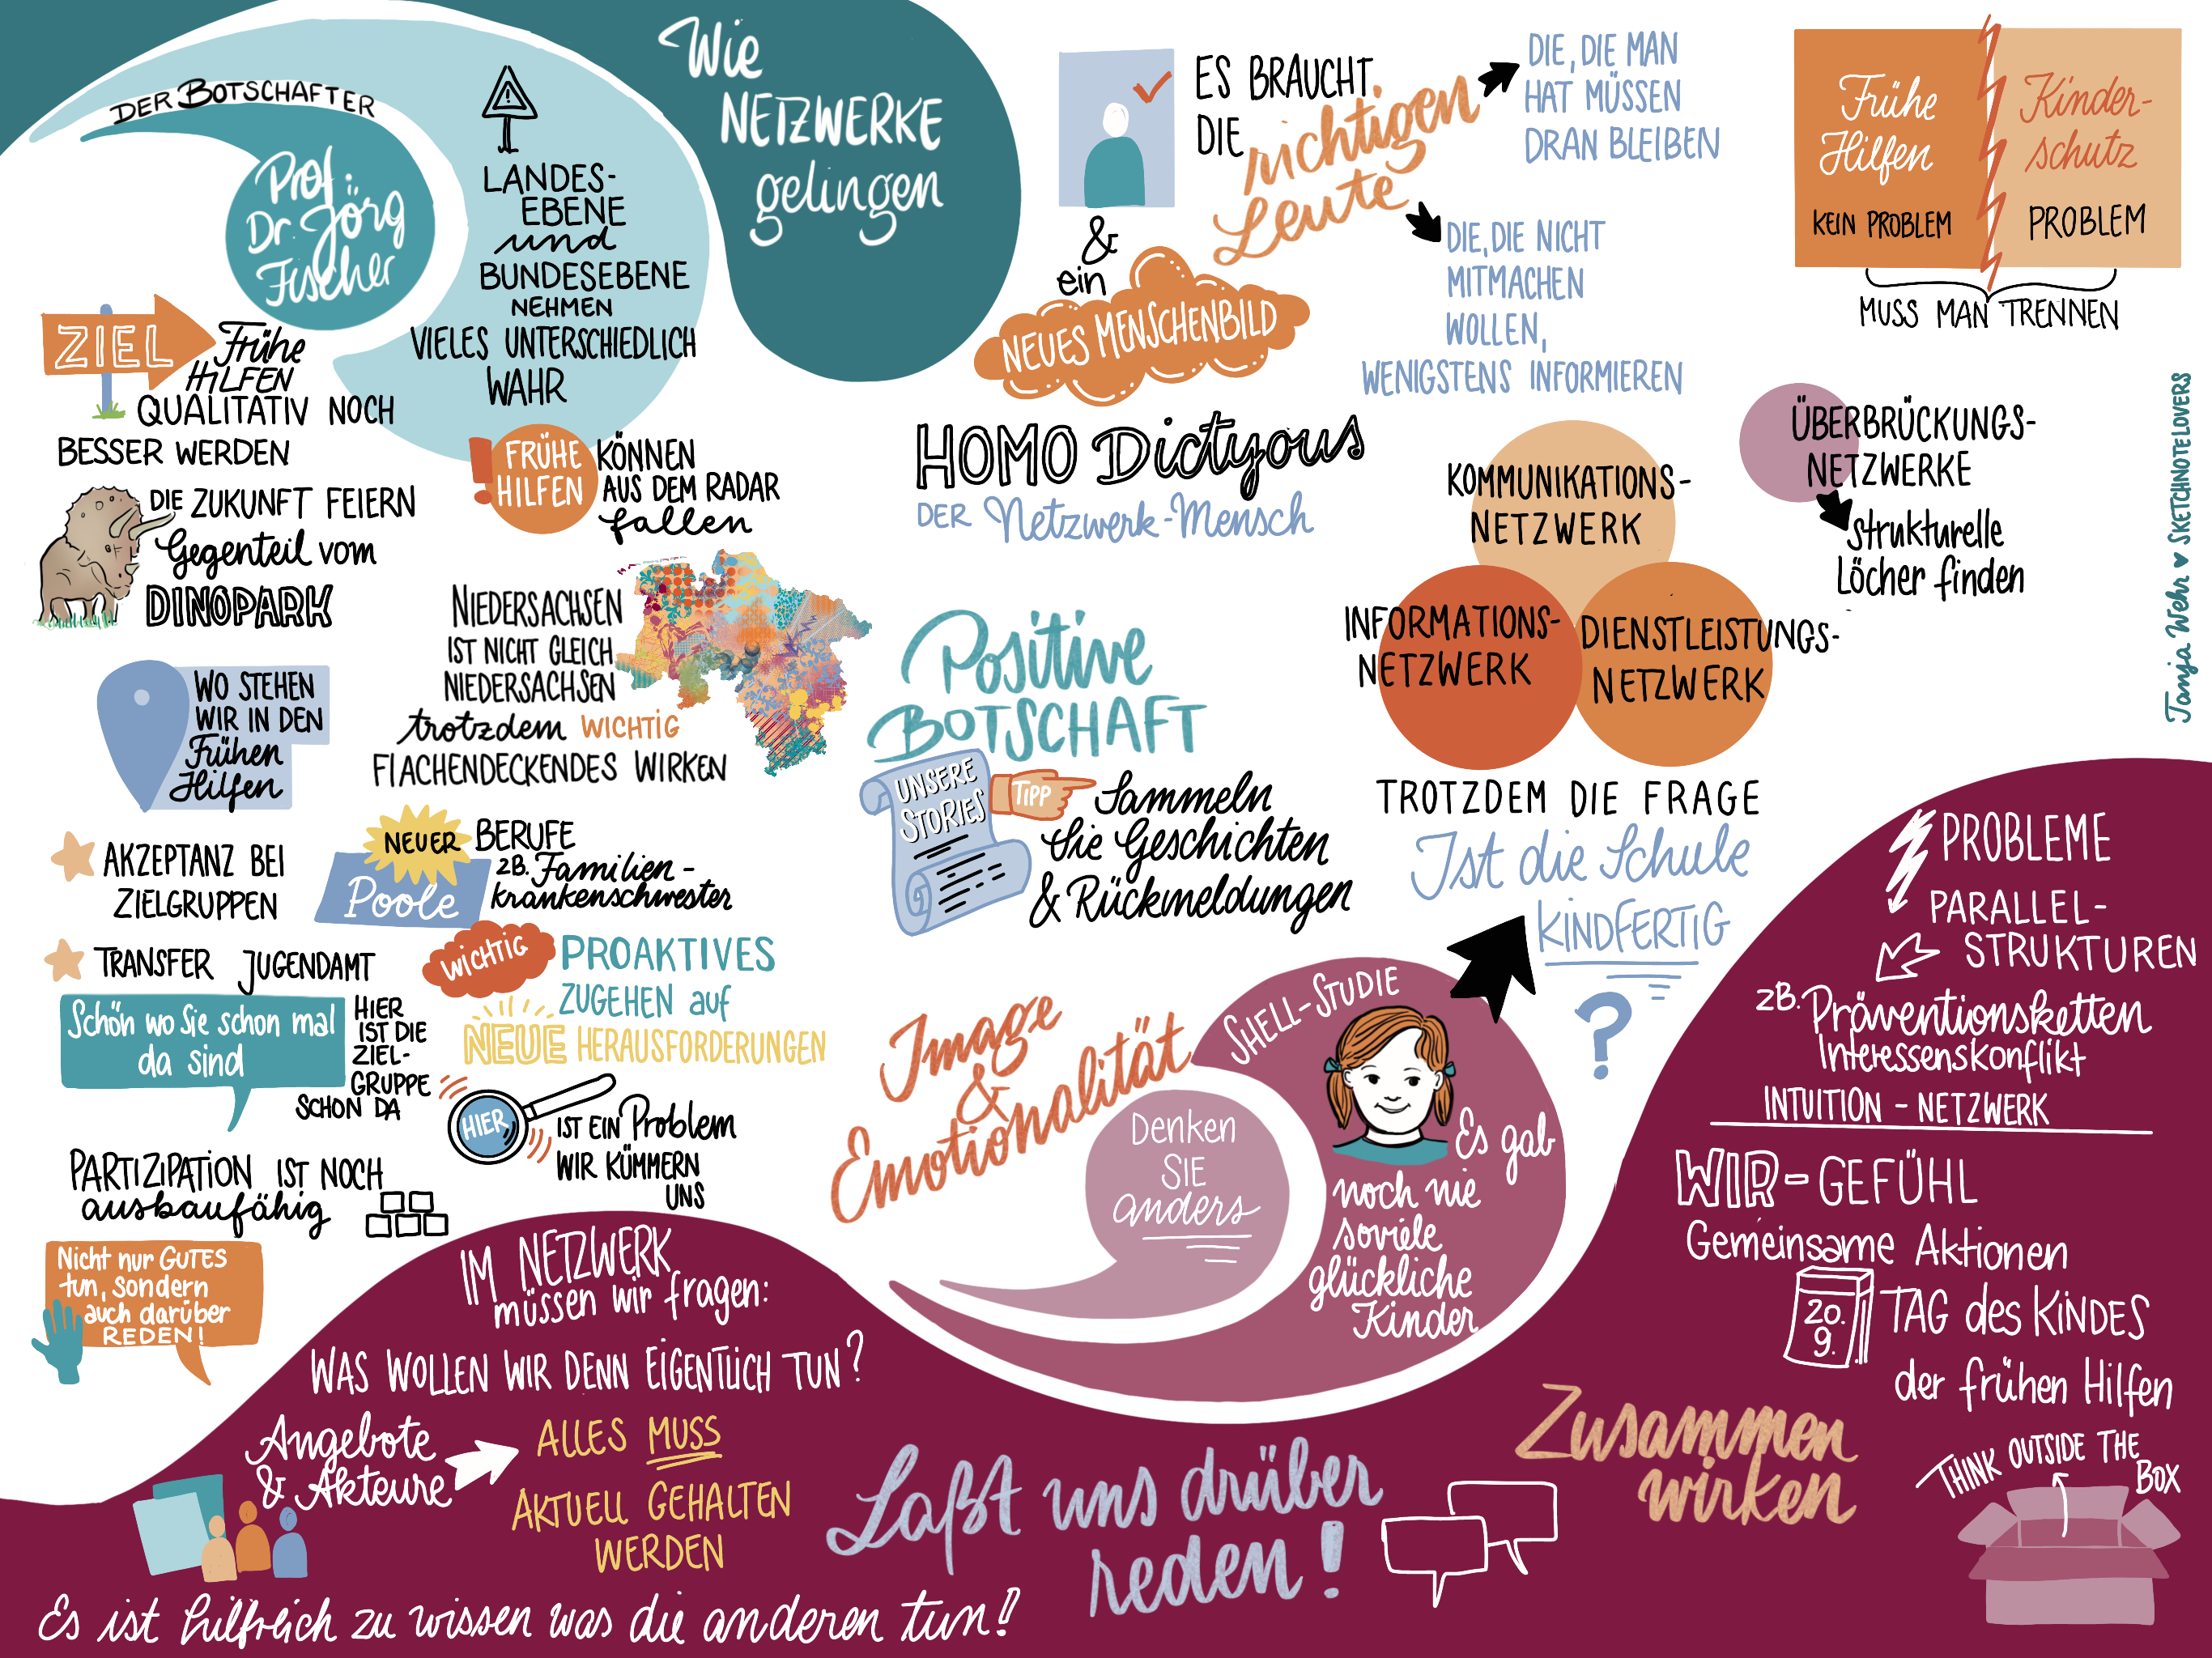 DER BOTSCHAFTER
Prof.
Dr. Jörg
Fischer
LANDES-
EBENE
und
BUNDESEBENE
NEHMEN
VIELES UNTERSCHIEDLICH
WAHR
Wie
NETZWERKE
gelingen
ZIEL
Frühe
HILFEN
QUALITATIV NOCH
BESSER WERDEN
DIE ZUKUNFT FEIERN
Gegenteil vom
DINOPARK
FRÜHE
HILFEN
KÖNNEN
AUS DEM RADAR
fallen
NIEDERSACHSEN
IST NICHT GLEICH
NIEDERSACHSEN
trotzdem WICHTIG
FLACHENDECKENDES WIRKEN
WO STEHEN
WIR IN DEN
Frühen
Hilfen
AKZEPTANZ BEI
ZIELGRUPPEN
NEUER
Poole
BERUFE
ZB. Familien-
krankenschwester
TRANSFER JUGENDAMT
WICHTIG
PROAKTIVES
ZUGEHEN auf
NEUE HERAUSFORDERUNGEN
Schön wo Sie schon mal
da sind
HIER
IST DIE
ZIEL-
GRUPPE
SCHON DA
HIER
IST EIN Problem
WIR KÜMMERN
UNS
PARTIZIPATION IST NOCH
ausbaufähig
Nicht nur GUTES
tun, sondern
auch darüber
REDEN!
ES BRAUCHT
DIE richtigen
Leute
DIE, DIE MAN
HAT MÜSSEN
DRAN BLEIBEN
DIE, DIE NICHT
MITMACHEN
WOLLEN,
WENIGSTENS INFORMIEREN
&
ein
NEUES MENSCHENBILD
HOMO Dictyous
DER Netzwerk-Mensch
Frühe
Hilfen
KEIN PROBLEM
Kinder-
schutz
PROBLEM
MUSS MAN TRENNEN
KOMMUNIKATIONS-
NETZWERK
INFORMATIONS-
NETZWERK
DIENSTLEISTUNGS-
NETZWERK
ÜBERBRÜCKUNGS-
NETZWERKE
strukturelle
Löcher finden
Tanja Wehr ♥ SKETCHNOTELOVERS
Positive
BOTSCHAFT
UNSERE
STORIES
TIPP
Sammeln
Sie Geschichten
& Rückmeldungen
TROTZDEM DIE FRAGE
Ist die Schule
KINDFERTIG
?
Image
&
Emotionalität
Denken
SIE
anders
SHELL-STUDIE
Es gab
noch nie
soviele
glückliche
Kinder
PROBLEME
PARALLEL-
STRUKTUREN
ZB. Präventionsketten
Interessenskonflikt
INTUITION - NETZWERK
WIR-GEFÜHL
Gemeinsame Aktionen
20.
9.
TAG des KINDES
der frühen Hilfen
THINK OUTSIDE THE
BOX
Zusammen
wirken
IM NETZWERK
müssen wir fragen:
WAS WOLLEN WIR DENN EIGENTLICH TUN?
Angebote
& Akteure
ALLES MUSS
AKTUELL GEHALTEN
WERDEN
Laßt uns drüber
reden!
Es ist hilfreich zu wissen was die anderen tun!